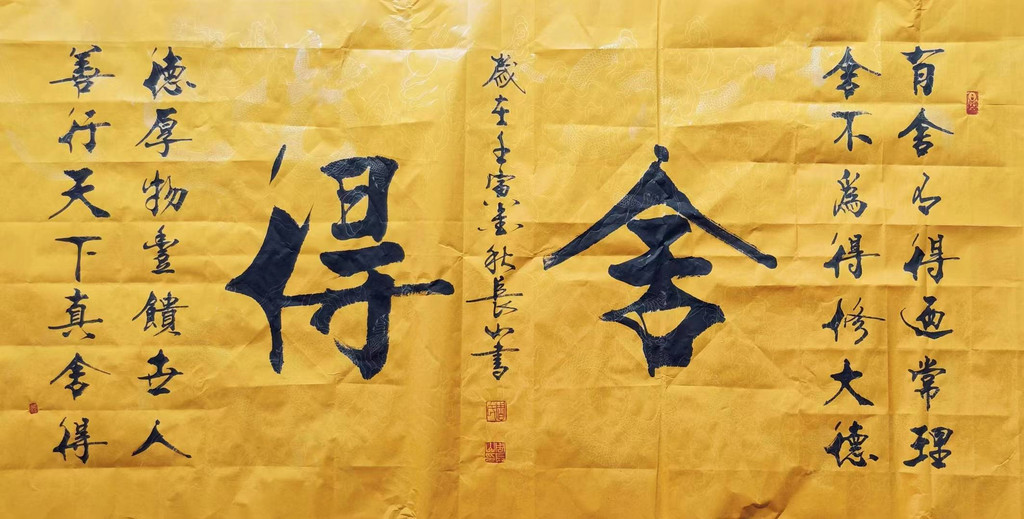 有舍有得迺常理
舍不爲得修大德
舍
歲在壬寅金秋長山書
得
德厚物豊饋世人
善行天下真舍得